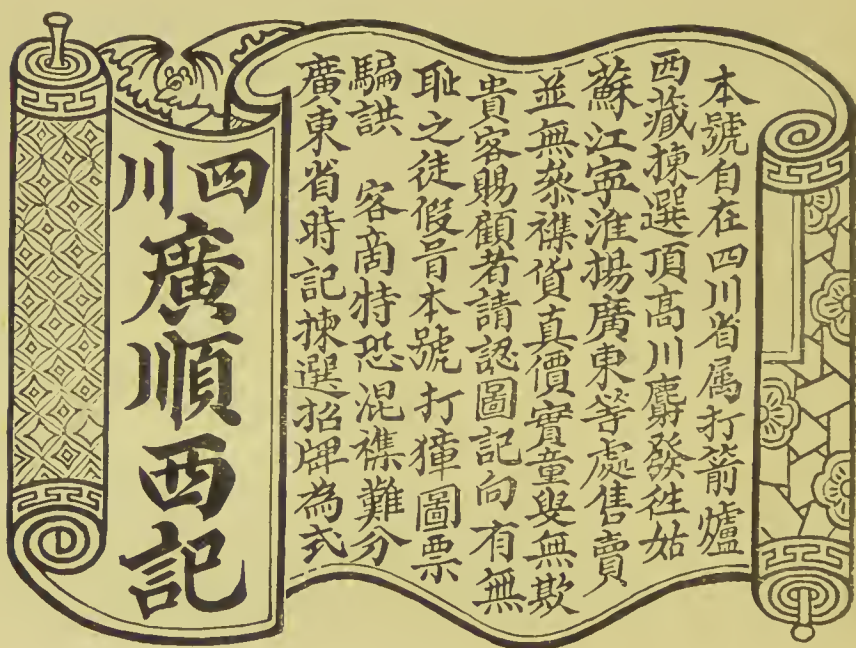 本號自在四川省属打箭爐
西藏揀選頂高川麝發徃姑
蘇江寧淮揚廣東等處售賣
並無叅襍貨真價實童叟無欺
貴客賜顧者請認圖記向有無
耻之徒假冒本號打獐圖票
騙誆 客商特恐混襍難分
廣東省時記揀選招牌為式
四川
廣順西記